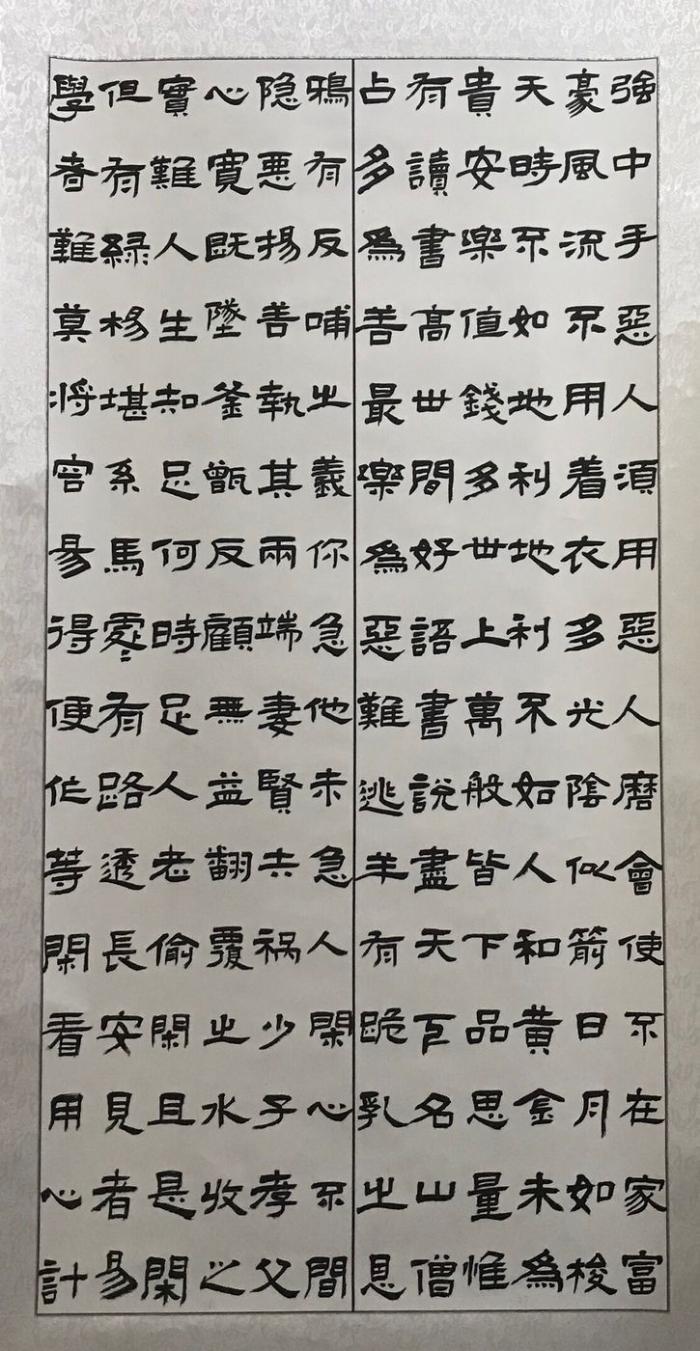 強中手惡人須用惡人磨會使不在家富
豪風流不用着衣多光陰似箭日月如梭
天時不如地利地利不如人和黃金未為
貴安樂值錢多世上萬般皆下品思量惟
有讀書高世間好語書說盡天下名山僧
占多爲善最樂為惡難逃羊有跪乳之恩
鴉有反哺之義你急他未急人閑心不間
隐悪揚善執其兩端妻賢夫祸少子孝父
心寬既墜釜甑反顧無益翻覆之水收之
實難人生知足何時足人老偷閑且是閑
但有緑楊堪系馬處々有路透長安見者易
學者難莫將容易得便作等閑看用心計